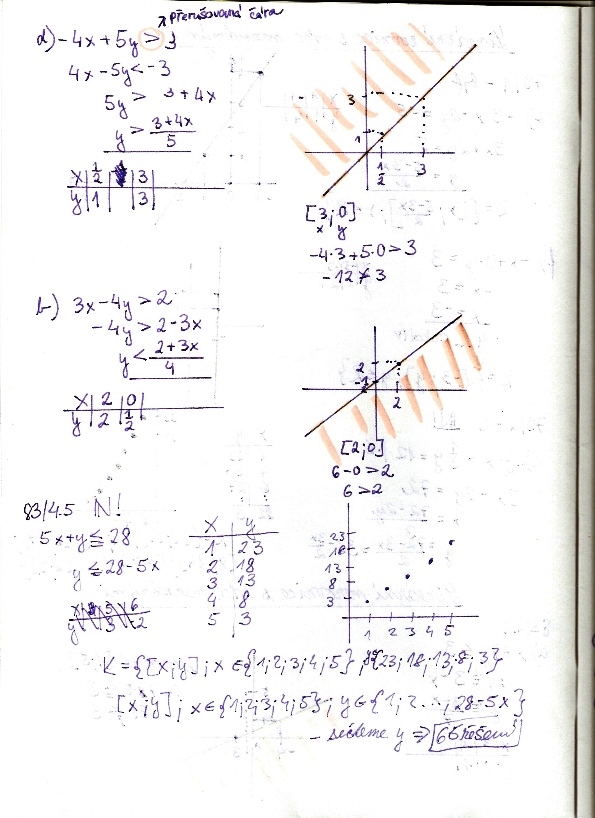 přerušovaná čára
d) -4x + 5y > 3
4x - 5y < -3
5y > 3 + 4x
y > \frac{3+4x}{5}
x | 1/2 | | 3 |
y | 1 | | 3 |
3
1
1/2 3
[3; 0]
x y
-4·3 + 5·0 > 3
-12 ≯ 3
b) 3x - 4y > 2
-4y > 2 - 3x
y < \frac{2+3x}{4}
x | 2 | 0 |
y | 2 | 1/2 |
2
-1
2
[2; 0]
6 - 0 > 2
6 > 2
83/45 N!
5x + y ≤ 28
y ≤ 28 - 5x
x | y
1 | 23
2 | 18
3 | 13
4 | 8
5 | 3
23
18
13
8
3
1 2 3 4 5
K = {[x; y]; x ∈ {1; 2; 3; 4; 5}; y {23; 18; 13; 8; 3}
[x; y]; x ∈ {1; 2; 3; 4; 5}; y ∈ {1; 2 ..., 28 - 5x}
- sečteme y ⇒ 65 řešení